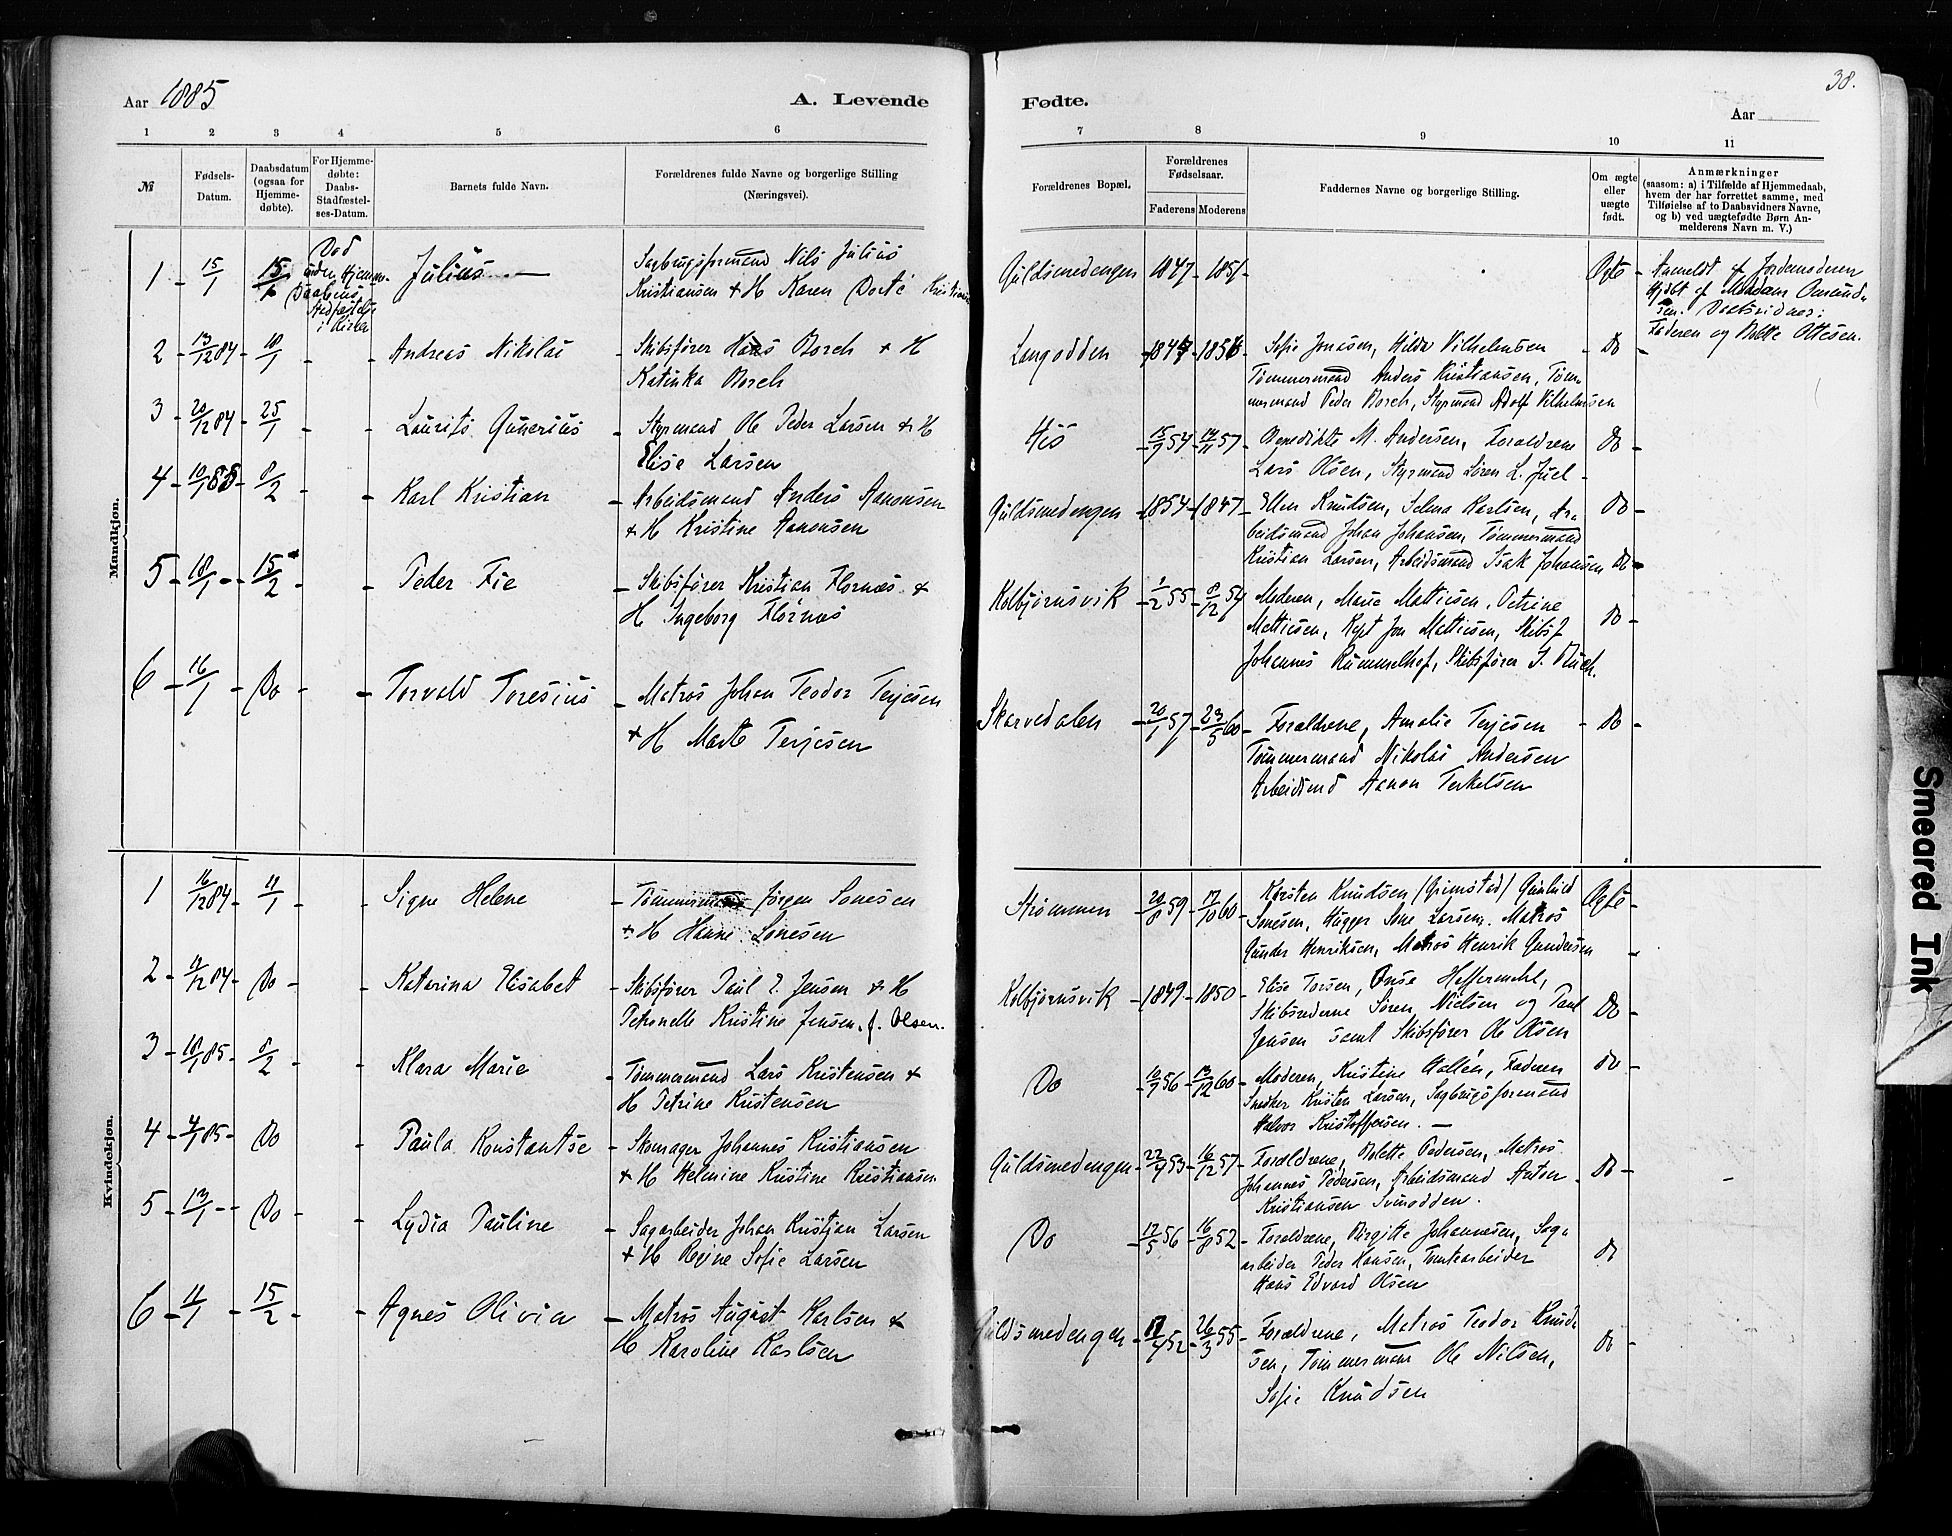 Aar 1885
A. Levende
Fødte.
38.
Aar
1 2 3 4 5 6 7 8 9 10 11
№
Fødsels-
Datum.
Daabsdatum
(ogsaa for
Hjemme-
døbte).
For Hjemme-
døbte:
Daabs-
Stadfæstel-
ses-Datum.
Barnets fulde Navn.
Forældrenes fulde Navne og borgerlige Stilling
(Næringsvei).
Forældrenes Bopæl.
Forældrenes
Fødselsaar.
Faderens Moderens
Faddernes Navne og borgerlige Stilling.
Om ægte
eller
uægte
født.
Anmærkninger
(saasom: a) i Tilfælde af Hjemmedaab,
hvem der har forrettet samme, med
Tilføielse af to Daabsvidners Navne,
og b) ved uægtefødte Børn An-
melderens Navn m. V.)
Mandkjøn.
1 - 15/1
15/1
Død
Julius
Sagbrugsformand Nils Julius
Kristiansen + H Karen Dorte
Guldsmedengen 1847 - 1851 -
Ægte
Anmeldt af Jordemoderen
Faderen og Bolette Ottesen.
2 - 13/12 84 - 18/1 - - Andreas Nikolai
- Skibsfører Hans Borch + H
Katinka Borch
Langodden
- Sofie Jonassen, Hilda Vilhelmsen
Tømmermand Anders Kristiansen, Tøm-
mermand Peder Borch, Styrmand Adolf Vilhelmsen
- Do -
3 - 20/12 84 - 25/1 - - Laurits Gunerius
- Styrmand Ole Peder Larsen + H
Elise Larsen
His
- 15/9 54 - 14/11 57
- Benedikte M. Andersen, Forældrene
Lars Olsen, Styrmand Søren L. Juel
- Do -
4 - 10/1 85 - 8/2 - - Karl Kristian
- Arbeidsmand Anders Aanonsen
+ H Kristine Aanonsen
Guldsmedengen - 1854 - 1847
- Ellen Knudsen, Selma Karlsen, Ar-
beidsmand Johan Johansen, Tømmermand
Kristian Larsen, Arbeidsmand Isak Johansen
- Do -
5 - 18/1 - - 15/2 - - Peder Fie
- Skibsfører Kristian Flørnæs +
H Ingeborg Flørnæs
Kolbjørnsvik - 1/2 55 - 8/12 54
- Moderen, Marie Mattiesen, Petrine
Mattiesen, Kapt Jon Mattiesen, Skibsf
Johannes Rummelhof, Skibsfører
Do -
6 - 16/1 - Do - - Torvald Toresius
- Matros Johan Teodor Terjesen
+ H Marte Terjesen
Skarvedalen - 20/1 57 - 23/5 60
- Forældrene, Amalie Terjesen
Tømmermand Nikolai Andersen
Arbeidsmd Aanon Terkelsen
- Do -
Kvindekjøn.
1 - 16/12 84 - 11/1 - - Signe Helene
- Tømmermand Jørgen Sonesen
+ H Hanne Sonesen
Strømmen - 20/8 59 - 17/10 60
- Karsten Knudsen (Grimstad) Gunhild
Sonesen, Hugger Sone Larsen, Matros
Gunder Henriksen, Matros Henrik Gundersen
Ægte -
2 - 11/12 84 - Do - - Katarina Elisabet
- Skibsfører Paul E. Jensen + H
Petronelle Kristine Jensen, f. Olsen.
Kolbjørnsvik - 1849 - 1850
- Elise Torsen, Heffermehl,
Skibsrederne Søren Nielsen og Paul
Jensen samt Skibsfører Ole Olsen
Do -
3 - 18/1 85 - 8/2 - - Klara Marie
- Tømmermand Lars Kristensen +
H Petrine Kristensen
Do - 10/9 56 - 13/12 60
- Moderen, Kristine Aallen, Faderen
Snedker Kristen Larsen, Sagbrugsformand
Halvor Kristoffersen.
Do -
4 - 4/1 85 - Do - Paula Konstantse
- Skomager Johannes Kristiansen
+ H Helmine Kristine Kristiansen
Guldsmedengen - 22/4 53 - 16/12 57
- Forældrene, Bolette Pedersen, Matros
Johannes Pedersen, Arbeidsmand Anton
Kristiansen Svinodden.
Do -
5 - 13/1 - - Do - - Lydia Pauline
- Sagarbeider Johan Kristian Larsen
+ H Regine Sofie Larsen
Do - 12/5 56 - 16/8 52
- Forældrene, Birgitte Johannesen, Sag-
arbeider Peder Hansen, Tomtearbeider
Hans Edvard Olsen
Do
6 - 11/1 - 15/2 - - Agnes Olivia
- Matros August Karlsen +
H Karoline Karlsen
Guldsmedengen - 17/4 52 - 26/3 55
- Forældrene, Matros Teodor Knud-
sen, Tømmermand Ole Nilsen,
Sofie Knudsen
Do -
Smeared Ink